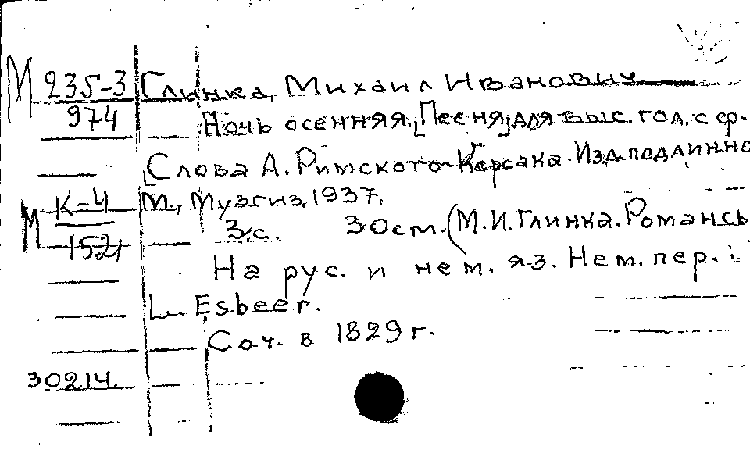 М 235-3 Глинка, Михаил Иванович
974 Ночь осенняя. [Песня] для выс. гол. с ф-
[Слова А. Римского-Корсака. Изд. подлинно
М К-4 М., Музгиз, 1937.
1521 3 с. 30 ст. (М.И. Глинка. Романсы
На рус. и нем. яз. Нем. пер.
L. Esbeer.
Соч. в 1829 г.
30214.